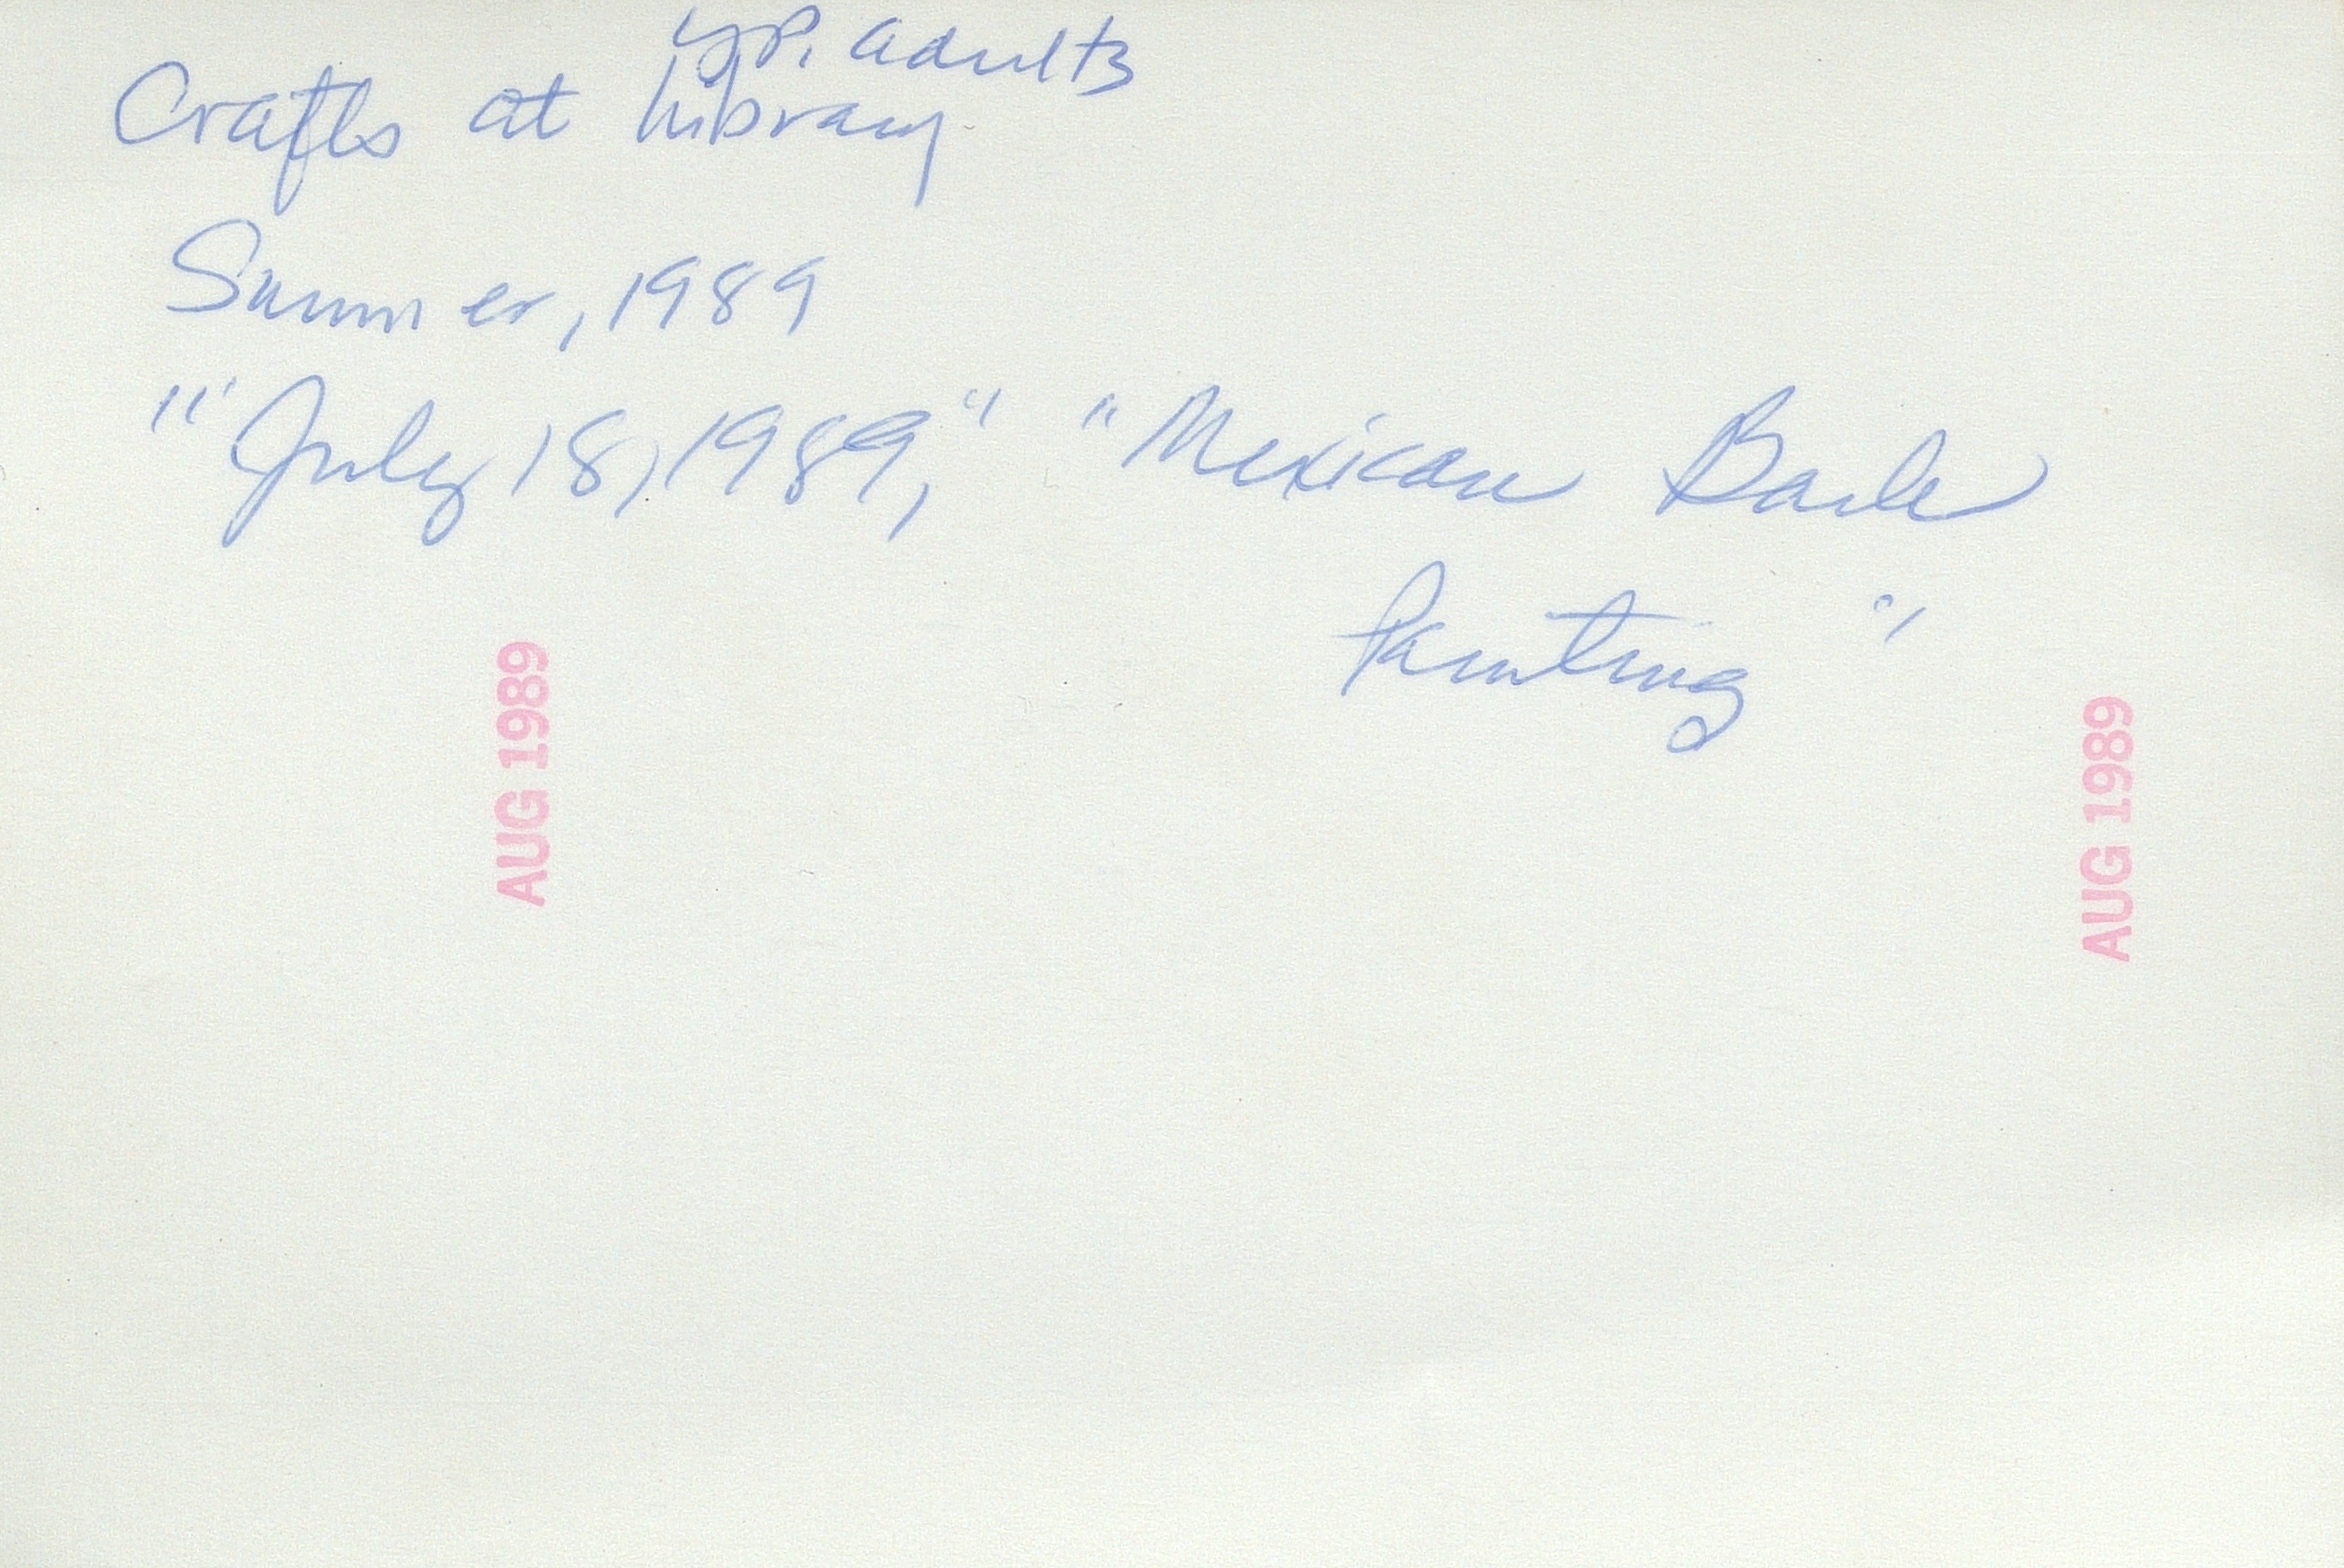 yp. adults
Crafts at Library
Summer, 1989
"July 18, 1989," "Mexican Bark
Painting"
AUG 1989
AUG 1989